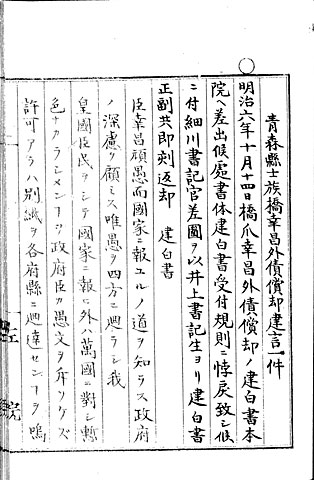 青森縣士族橋幸昌外債償却建言一件
明治六年十月十四日橋爪幸昌外債償却ノ建白書本
院ヘ差出候處書体建白書受付規則ニ悖戻致シ候
ニ付細川書記官差圖ヲ以井上書記生ヨリ建白書
正副共即刻返却　建白書
臣幸昌頑愚而國家ニ報エルノ道ヲ知ラス政府
ノ深慮ヲ顧ミス唯愚ヲ四方ニ廻ラシ我
皇國臣民ヲシテ國家ニ報ヒ外ハ萬國ニ對シ慙
色ナカラシメンヿヲ政府臣カ愚文ヲ斥ケズ
許可アラハ別紙ヲ各府縣ニ廻達センヿヲ鳴
院